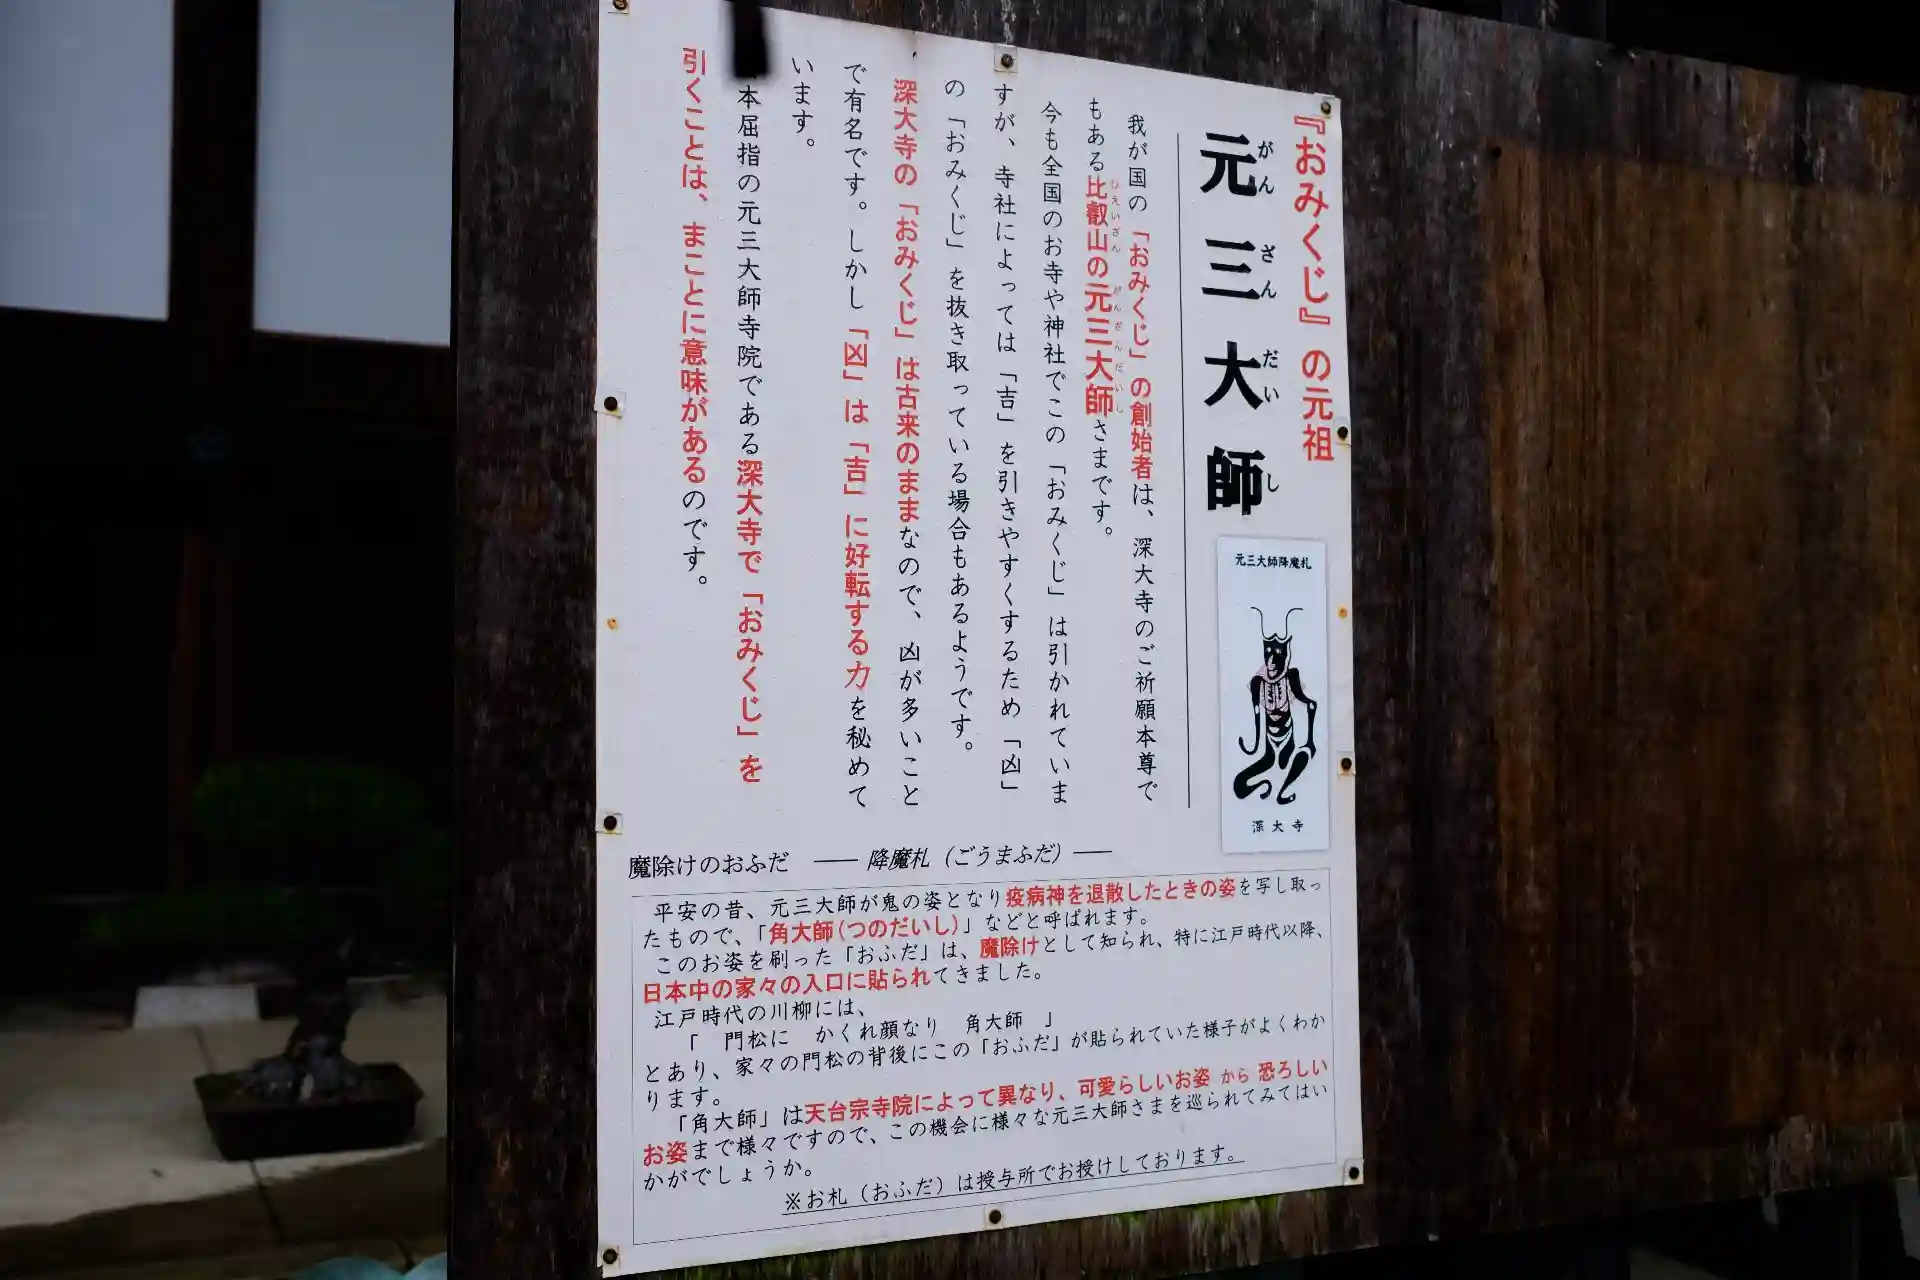 『おみくじ』の元祖
元三大師
がんさんだいし
元三大師降魔札
深大寺
我が国の「おみくじ」の創始者は、深大寺のご祈願本尊で
もある比叡山の元三大師さまです。
ひえいざん がんざんだいし
今も全国のお寺や神社でこの「おみくじ」は引かれていま
すが、寺社によっては「吉」を引きやすくするため「凶」
の「おみくじ」を抜き取っている場合もあるようです。
深大寺の「おみくじ」は古来のままなので、凶が多いこと
で有名です。しかし「凶」は「吉」に好転する力を秘めて
います。
本屈指の元三大師寺院である深大寺で「おみくじ」を
引くことは、まことに意味があるのです。
魔除けのおふだ ―― 降魔札（ごうまふだ）――
平安の昔、元三大師が鬼の姿となり疫病神を退散したときの姿を写し取っ
たもので、「角大師（つのだいし）」などと呼ばれます。
このお姿を刷った「おふだ」は、魔除けとして知られ、特に江戸時代以降、
日本中の家々の入口に貼られてきました。
江戸時代の川柳には、
「 門松に かくれ顔なり 角大師 」
とあり、家々の門松の背後にこの「おふだ」が貼られていた様子がよくわか
ります。
「角大師」は天台宗寺院によって異なり、可愛らしいお姿 から 恐ろしい
お姿まで様々ですので、この機会に様々な元三大師さまを巡られてみてはい
かがでしょうか。
※お札（おふだ）は授与所でお授けしております。